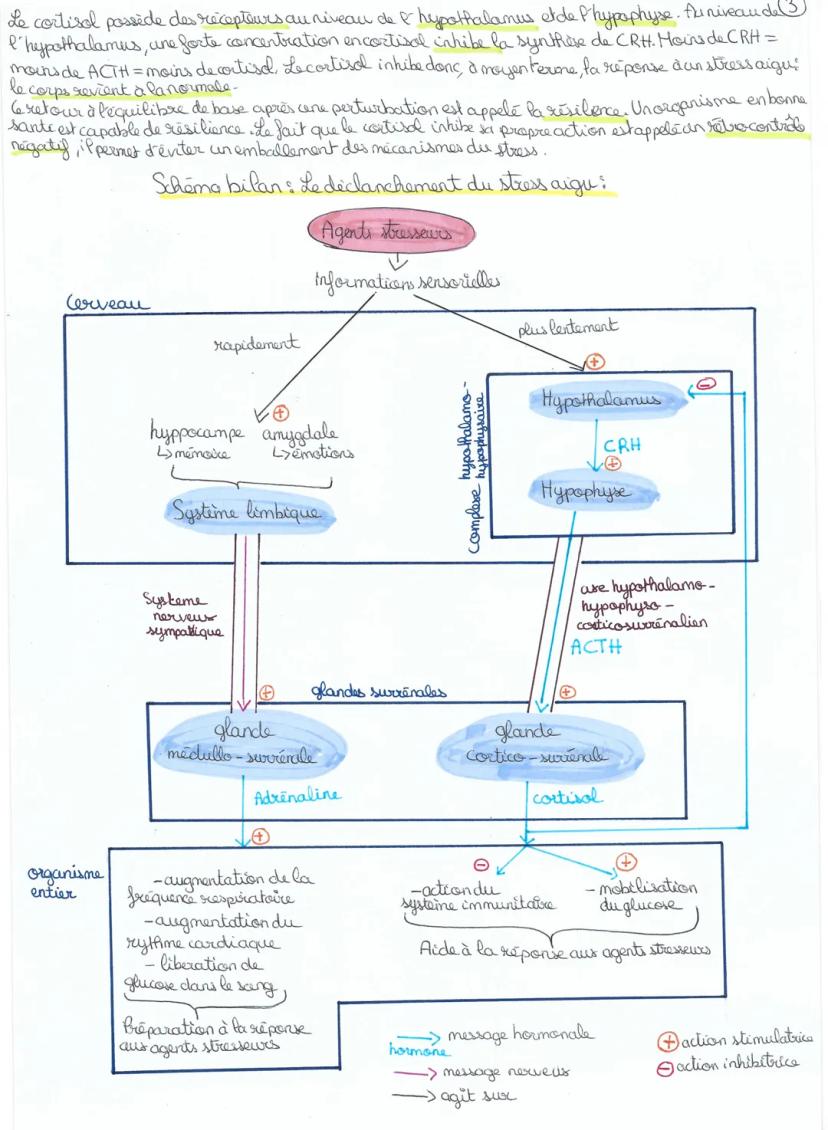 Le cortisol possède des récepteurs au niveau de l'hypothalamus et de l'hypophyse. Au niveau de 3
l'hypothalamus, une forte concentration en cortisol inhibe la synthèse de CRH. Moins de CRH =
moins de ACTH = moins de cortisol. Le cortisol inhibe donc, à moyen terme, la réponse à un stress aigu:
le corps revient à la normale.
Le retour à l'équilibre de base après une perturbation est appelé la résilence. Un organisme en bonne
santé est capable de résilience. Le fait que le cortisol inhibe sa propre action est appelé un rétrocontrôle
négatif, il permet d'éviter un emballement des mécanismes du stress.
Schéma bilan : Le déclanchement du stress aigu :
Agents stresseurs
informations sensorielles
Cerveau
rapidement
plus lentement
+
complexe hypothalamo-
hypophysaire
Hypothalamus
-
CRH
+
Hypophyse
+
hyppocampe
↳ mémoire
amygdale
↳ émotions
Système limbique
Systeme
nerveux
sympathique
+
axe hypothalamo-
hypophyso-
corticosurrénalien
ACTH
+
glandes surrénales
glande
médullo-surrénale
glande
cortico-surrénale
Adrénaline
+
cortisol
organisme
entier
-augmentation de la
fréquence respiratoire
-augmentation du
rythme cardiaque
- liberation de
glucose dans le sang
Préparation à la réponse
aux agents stresseurs
-
-action du
système immunitaire
+
- mobilisation
du glucose
Aide à la réponse aux agents stresseurs
→ message hormonale
hormone
→ message nerveux
→ agit sur
+ action stimulatrice
- action inhibitrice